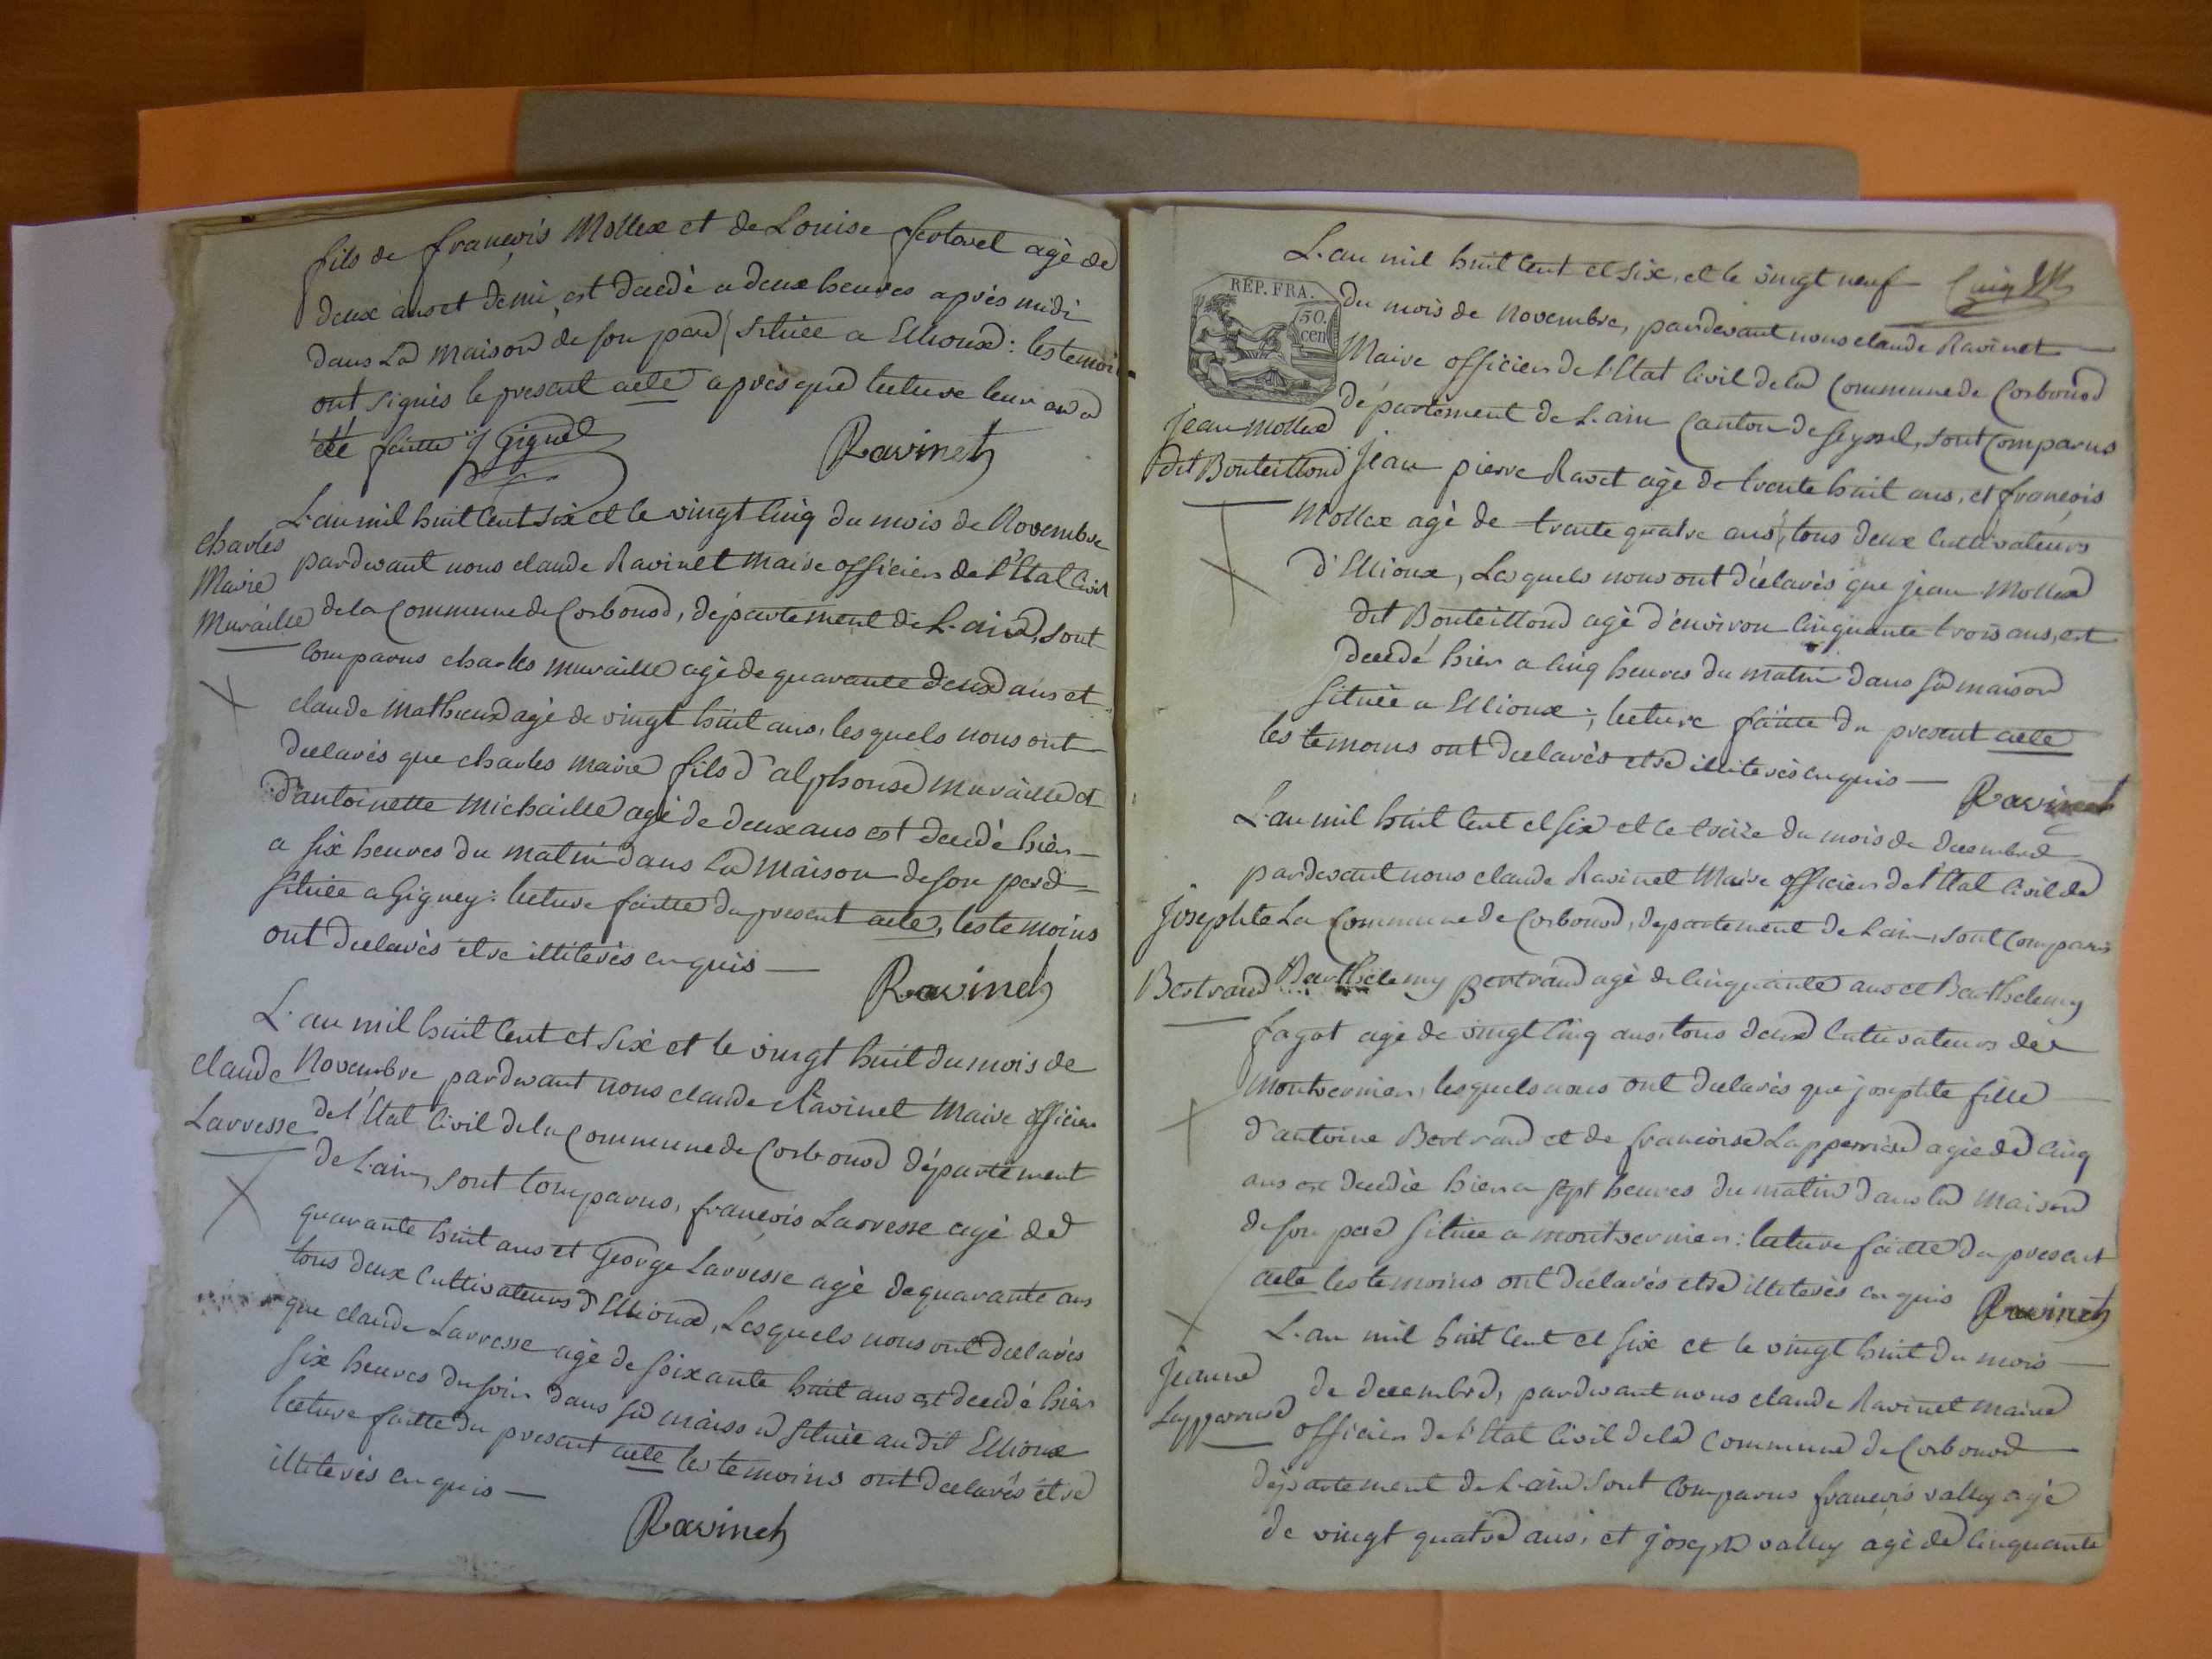 fils de françois Mollex et de Louise fertoret agè de
deux ans et demi, est decedè a deux heures après midi
dans La maison de son pere situèe a Ellioux : les temoins
ont signès le present acte après que lecture leur en a
étè faitte Gignel
Ravinet
charles
Marie
Muraille
L'an mil huit Cent Six et le vingt Cinq du mois de Novembre
pardevant nous claude Ravinet maire officier de l'Etat Civil
de la Commune de Corbonod, département de L'ain, sont
Comparus charles muraille agè de quarante deux ans et
claude mathieux agè de vingt huit ans, lesquels nous ont
declarès que charles marie fils d'alphonse muraille et
d'antoinette michaille agè de deux ans est decedè hier
a six heures du matin dans La maison de son pere
situèe a Gigney : lecture faitte du present acte, les temoins
ont declarès etre illiterès enquis —
Ravinet
claude
Larvesse
L'an mil huit Cent et Six et le vingt huit du mois de
Novembre pardevant nous claude Ravinet Maire officier
de l'Etat Civil de la Commune de Corbonod département
de L'ain, sont Comparus, françois Larvesse agè de
quarante huit ans et George Larvesse agè de quarante ans
tous deux Cultivateurs d'Ellioux, Lesquels nous ont declarès
que claude Larvesse agè de soixante huit ans est decedé hier
six heures du soir dans sa maison situèe au dit Ellioux
lecture faitte du present acte les temoins ont declarès étre
illiterès enquis —
Ravinet
L'an mil huit Cent et Six, et le vingt neuf Cinq
RÉP. FRA.
50.
cen
du mois de Novembre, pardevant nous claude Ravinet
Maire officier de l'Etat Civil de la Commune de Corbonod
département de L'ain Canton de Seyssel, sont Comparus
Jean Mollex
dit Bouteilloud
Jean pierre Ravet agè de trente huit ans, et françois
Mollex agè de trente quatre ans tous deux Cultivateurs
d'Ellioux, Lesquels nous ont déclarès que jean Mollex
dit Bouteilloud agè d'environ Cinquante trois ans, est
decedé hier a Cinq heures du matin dans sa maison
situèe a Ellioux ; lecture faitte du present acte
les temoins ont declarès etre illiterès enquis —
Ravinet
L'an mil huit Cent et Six et le treize du mois de decembre
pardevant nous claude Ravinet Maire officier de l'Etat Civil de
Josephte
Bertrand
La Commune de Corbonod, departement de L'ain, sont Comparus
Barthelemy Bertrand agè de Cinquante ans et Barthelemy
fagot agè de vingt Cinq ans, tous deux Cultivateurs de
Montvernier, lesquels nous ont declarès que josephte fille
d'antoine Bertrand et de francoise Lapperriere agèe de Cinq
ans est decedèe hier a sept heures du matin dans la maison
de son pere situèe a montvernier : lecture faitte du present
acte les temoins ont declarès etre illiterès enquis
Ravinet
Jeanne
L'an mil huit Cent et Six et le vingt huit du mois —
de decembre, pardevant nous claude Ravinet maire
officier de l'Etat Civil de la Commune de Corbonod
département de L'ain sont Comparus françois vallez agè
de vingt quatre ans, et joseph vallez agè de Cinquante